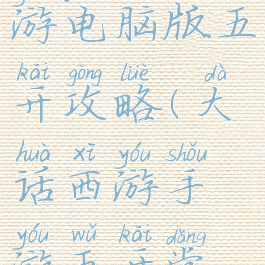 游电脑版五
kāi gōng lüè dà
开攻略(大
huà xī yóu shǒu
话西游手
yóu wǔ kāi dǎng
游五开党